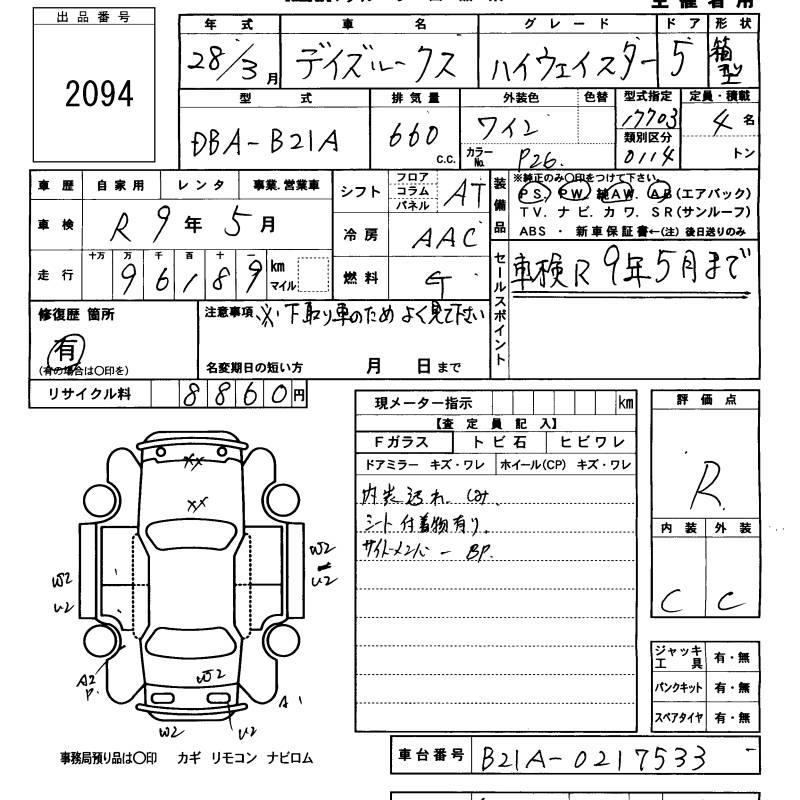 出品番号
2094
年式 車名 グレード ドア 形状
28/3月 デイズルークス ハイウェイスター 5 箱型
型式 排気量 外装色 色替 型式指定 定員・積載
DBA-B21A 660 c.c. ワイン 17703 4名
カラーNo. P26. 類別区分 0114 トン
車歴 自家用 レンタ 事業.営業車
車検 R9年5月
走行 十万 万 千 百 十 一
96189 km マイル
シフト フロア コラム パネル AT
冷房 AAC
燃料 G
装備品
※純正のみ○印をつけて下さい。
PS. PW. 純AW. AB(エアバック)
TV. ナビ. カワ. SR(サンルーフ)
ABS ・ 新車保証書←(注)後日送りのみ
セールスポイント
車検R9年5月まで
修復歴 箇所
有
(有の場合は○印を)
注意事項 ※下取り車のためよく見て下さい
名変期日の短い方 月 日まで
リサイクル料 8860円
現メーター指示 km
【査定員記入】
Fガラス トビ石 ヒビワレ
ドアミラー キズ・ワレ ホイール(CP) キズ・ワレ
内装汚れ しみ.
シート付着物有り.
サイドメンバー BP.
評価点
R
内装 外装
C C
XX
XX
W2
U2
W2
U2
A2
P.
W2
A1
W2
U2
ジャッキ工具 有・無
パンクキット 有・無
スペアタイヤ 有・無
事務局預り品は○印 カギ リモコン ナビロム
車台番号 B21A-0217533